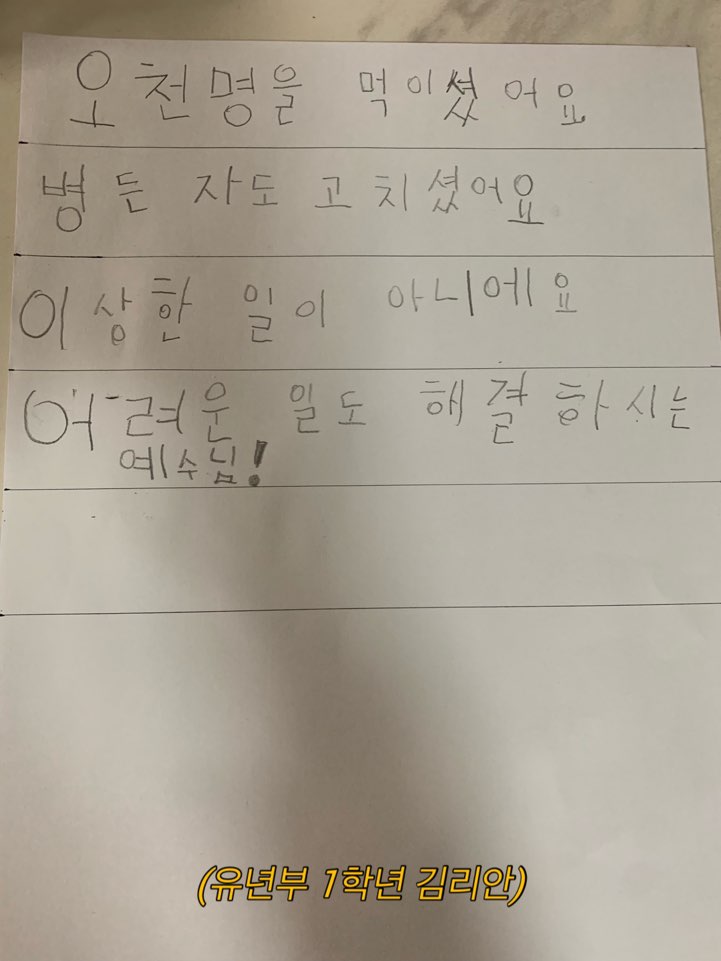 오천명을 먹이셨어요
병든 자도 고치셨어요
이상한 일이 아니에요
어려운 일도 해결하시는
예수님!
(유년부 1학년 김리안)